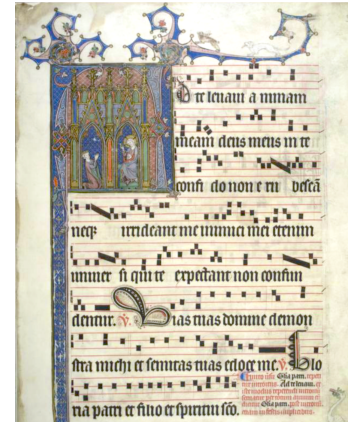 D te levavi a nimam
meam deus meus in te
confi do non e ru bescā
neqꝫ irrideant me inimici mei etenim
univer si qui te expectant non confun
dentur. ℣. Vias tuas domine demon
stra michi et semitas tuas edoce me. ℣. Glo
ria patri et filio et spiritui sc̄o.
Gl̄ia patri
Ad te levavi
Gl̄ia patri